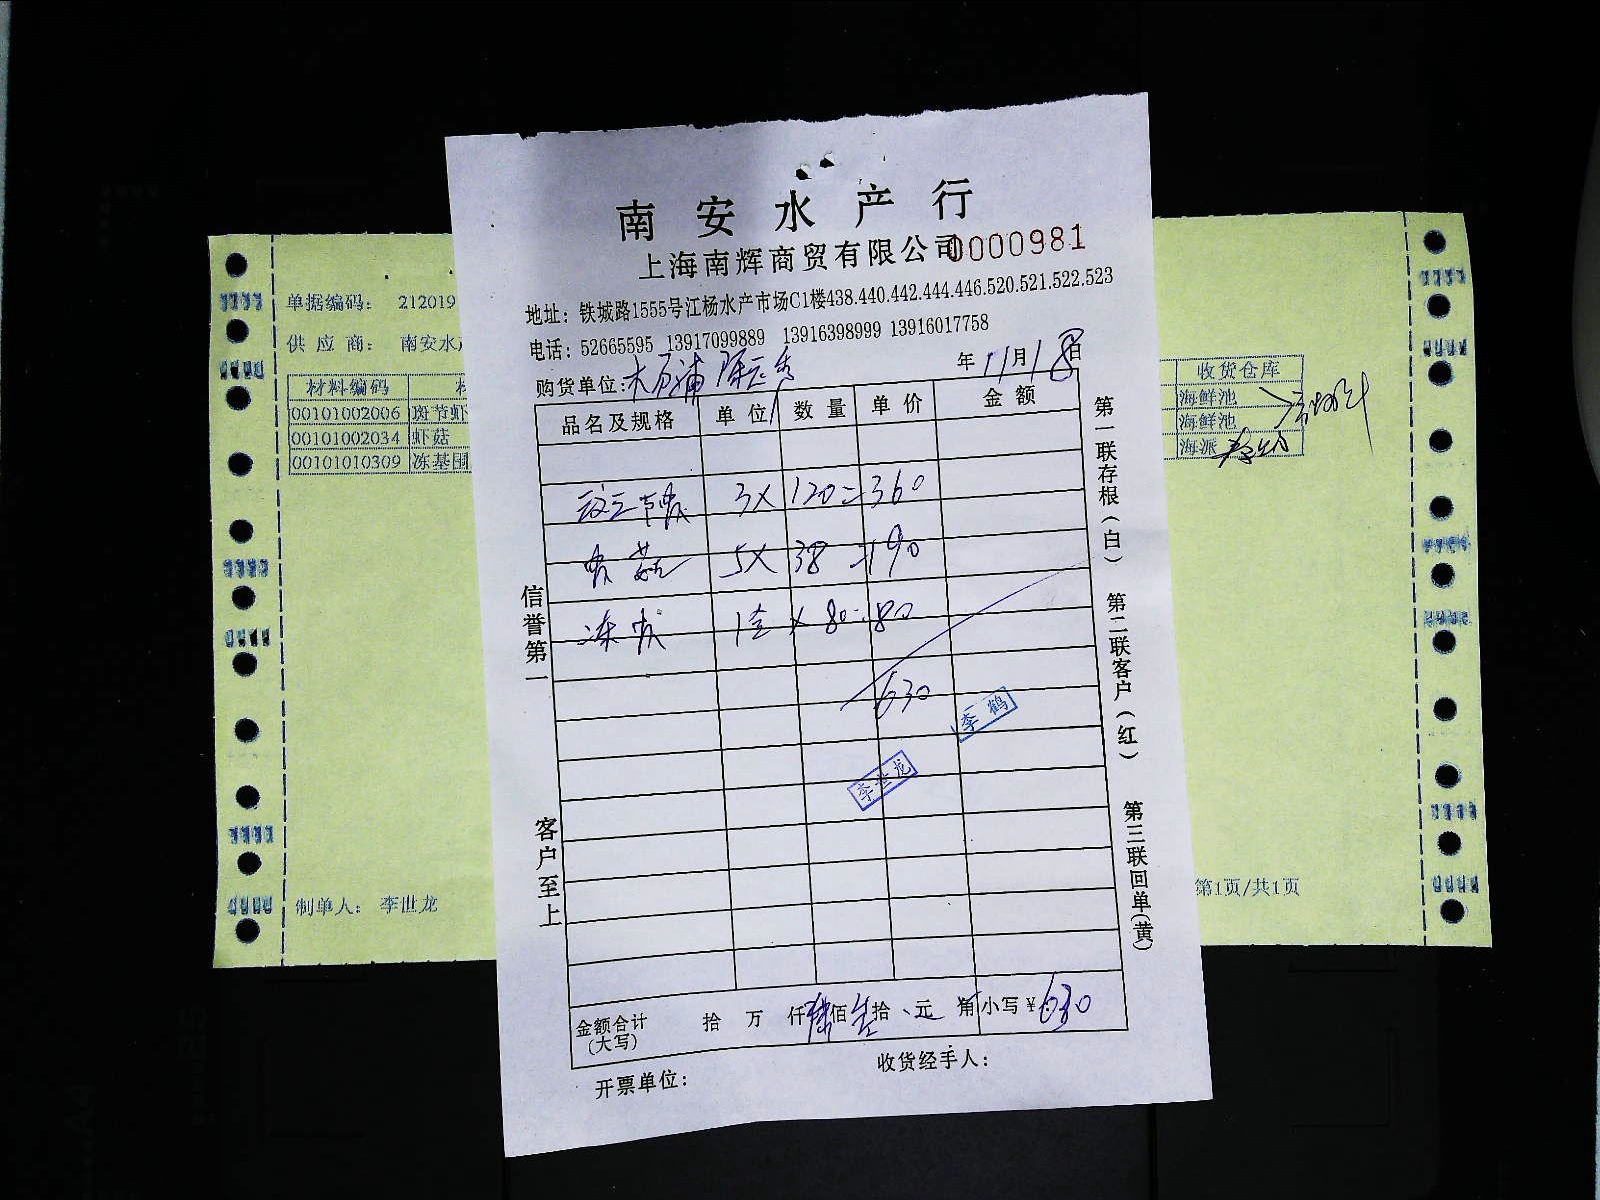 南安水产行
上海南辉商贸有限公司 0000981
地址：铁城路1555号江杨水产市场C1楼438.440.442.444.446.520.521.522.523
电话：52665595 13917099889 13916398999 13916017758
购货单位：
年 11月18日
品名及规格 单位 数量 单价 金额
节虾 3× 120=360
虾菇 5× 38=190
冻虾 1盒×80=80
630
李鹤
李世龙
金额合计(大写) 拾 万 仟 陆佰 叁拾 元 角 小写¥630
开票单位：
收货经手人：
信誉第一
客户至上
第一联存根(白)
第二联客户(红)
第三联回单(黄)
单据编码： 212019
供应商： 南安水
材料编码
00101002006 斑节虾
00101002034 虾菇
00101010309 冻基围
制单人： 李世龙
收货仓库
海鲜池
海鲜池
海派
第1页/共1页